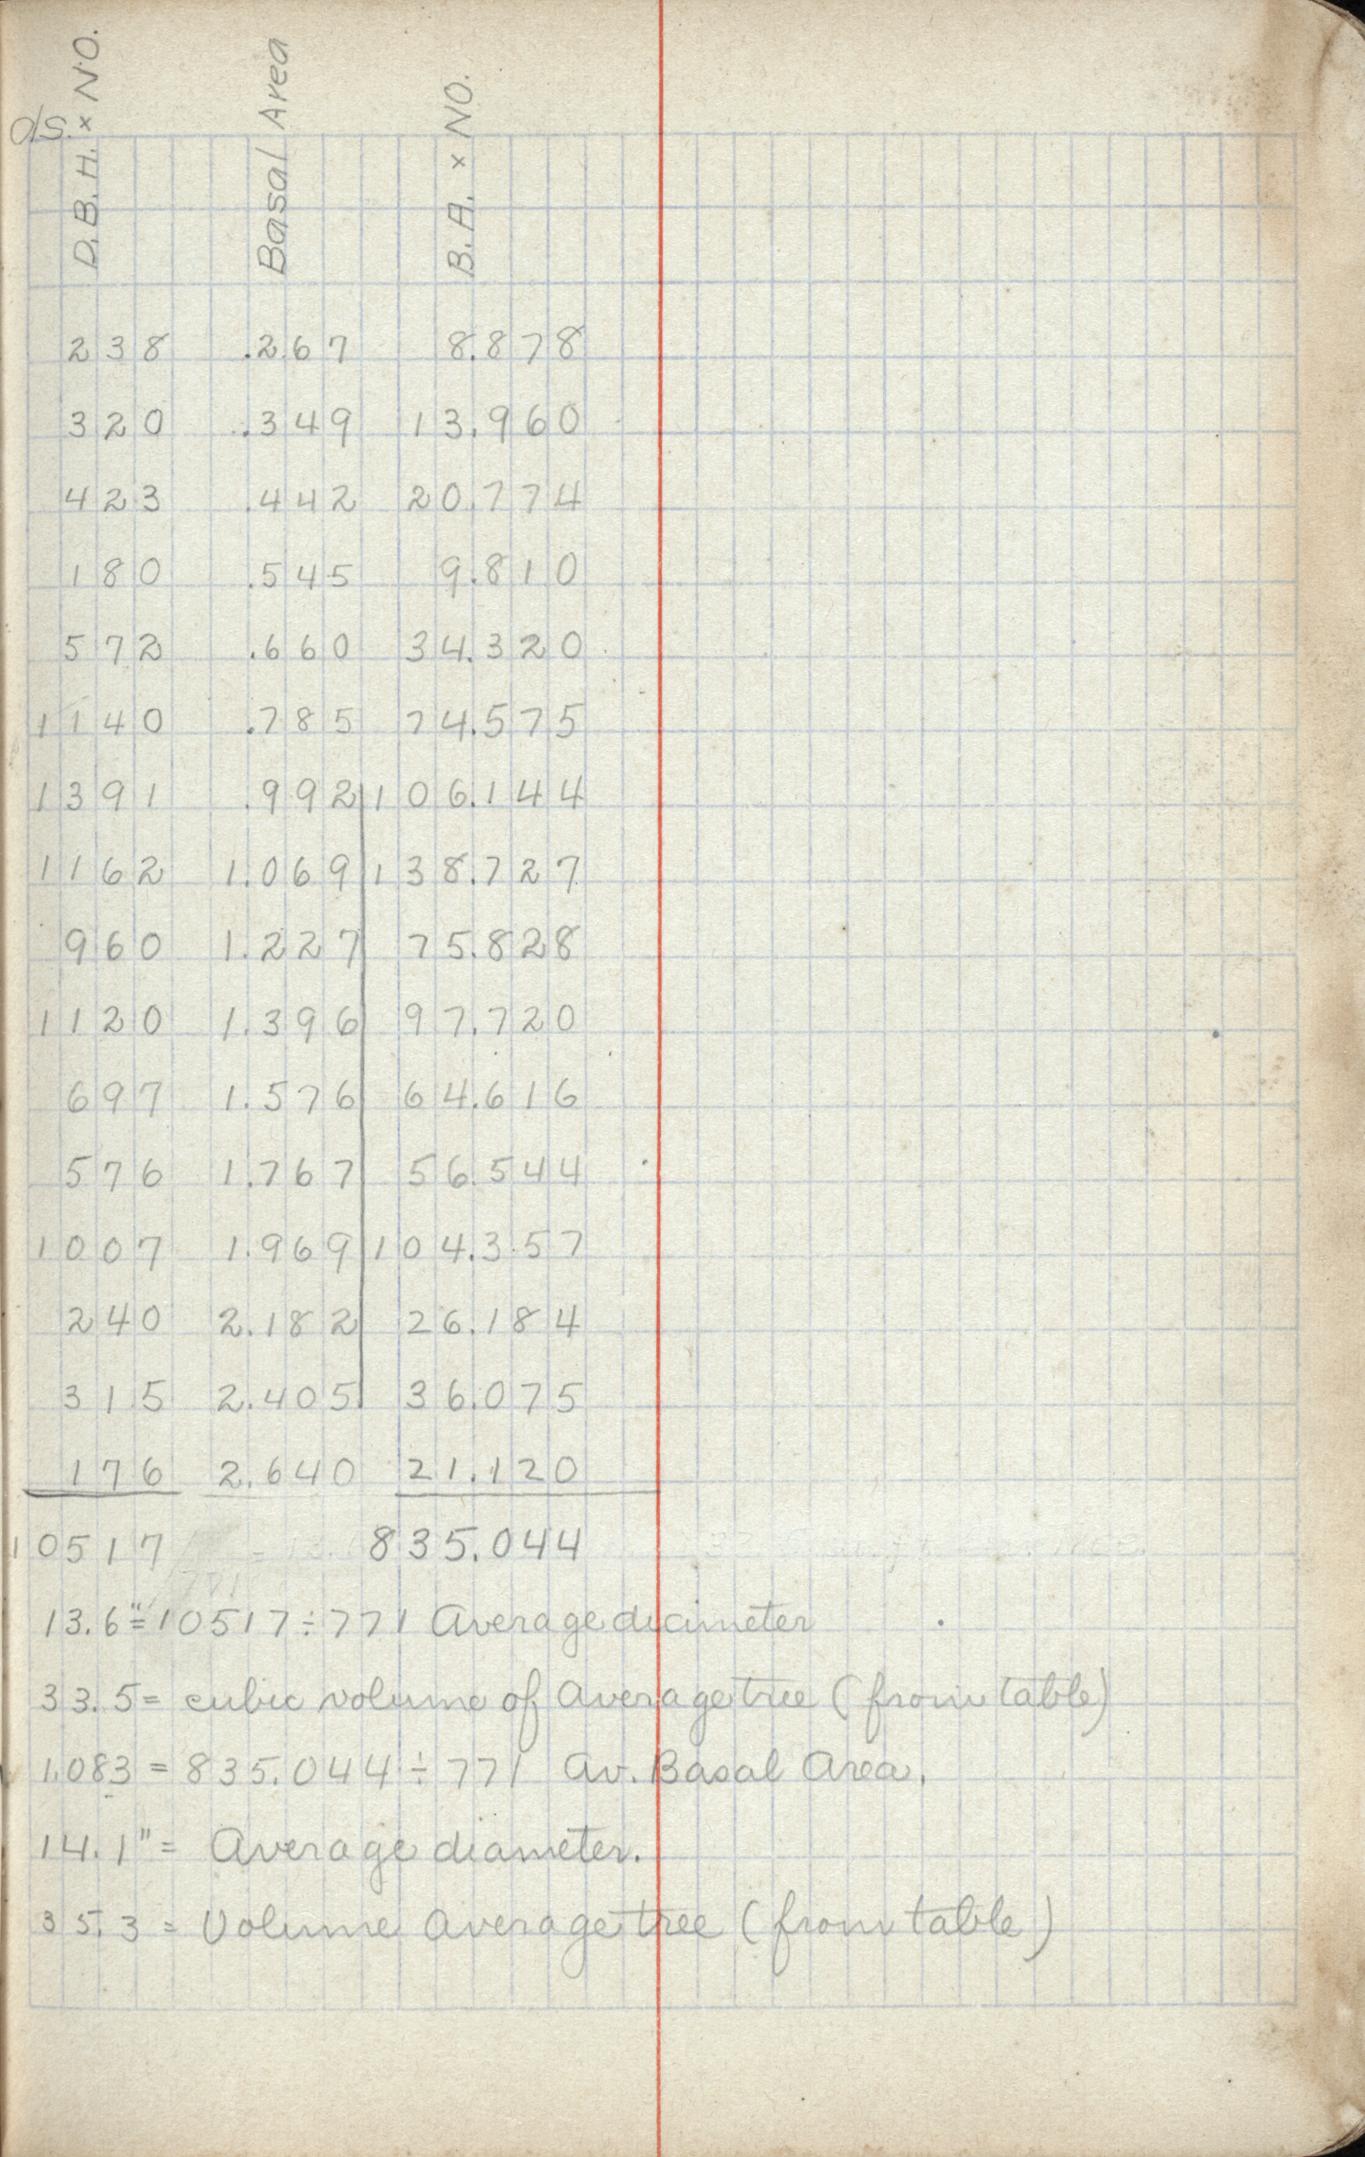 ds.
D.B.H. × NO. Basal Area B.A. × NO.
238 .267 8.878
320 .349 13.960
423 .442 20.774
180 .545 9.810
572 .660 34.320
1140 .785 74.575
1391 .992 106.144
1162 1.069 138.727
960 1.227 75.828
1120 1.396 97.720
697 1.576 64.616
576 1.767 56.544
1007 1.969 104.357
240 2.182 26.184
315 2.405 36.075
176 2.640 21.120
10517 835.044
13.6"=10517÷771 Average diameter
33.5= cubic volume of average tree (from table)
1.083 = 835.044÷771 Av. Basal Area.
14.1"= Average diameter.
35.3 = Volume average tree (from table)